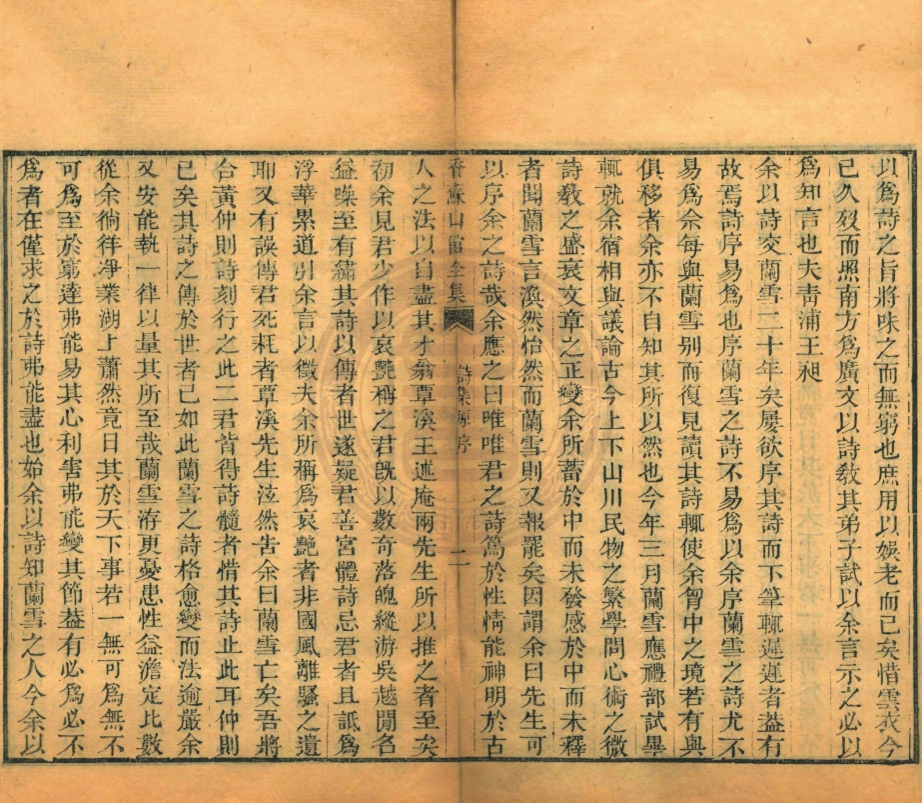 以爲詩之旨將味之而無窮也庶用以娛老而已矣惜雲衣今
已久歿而照南方爲廣文以詩敎其弟子試以余言示之必以
爲知言也夫靑浦王昶
余以詩交蘭雪二十年矣屢欲序其詩而下筆輒遲遲者葢有
故焉詩序易爲也序蘭雪之詩不易爲以余序蘭雪之詩尤不
易爲余每與蘭雪別而復見讀其詩輒使余胷中之境若有與
俱移者余亦不自知其所以然也今年三月蘭雪應禮部試畢
輒就余宿相與議論古今上下山川民物之繁學問心術之微
詩敎之盛衰文章之正變余所蓄於中而未發感於中而未釋
者聞蘭雪言渙然怡然而蘭雪則又報罷矣因謂余曰先生可
以序余之詩哉余應之曰唯唯君之詩篤於性情能神明於古
香蘇山館全集 詩集原序 二
人之法以自盡其才翁覃溪王述庵兩先生所以推之者至矣
初余見君少作以哀艷稱之君旣以數奇落魄縱游吳越閒名
益噪至有繡其詩以傳者世遂疑君善宮體詩忌君者且詆爲
浮華累道引余言以徵夫余所稱爲哀艷者非國風離騷之遺
耶又有誤傳君死秏者覃溪先生泫然告余曰蘭雪亡矣吾將
合黃仲則詩刻行之此二君皆得詩髓者惜其詩止此耳仲則
已矣其詩之傳於世者已如此蘭雪之詩格愈變而法逾嚴余
又安能執一律以量其所至哉蘭雪洊更憂患性益澹定比數
從余徜徉凈業湖上蕭然竟日其於天下事若一無可爲無不
可爲至於窮達弗能易其心利害弗能變其節葢有必爲必不
爲者在僅求之於詩弗能盡也始余以詩知蘭雪之人今余以